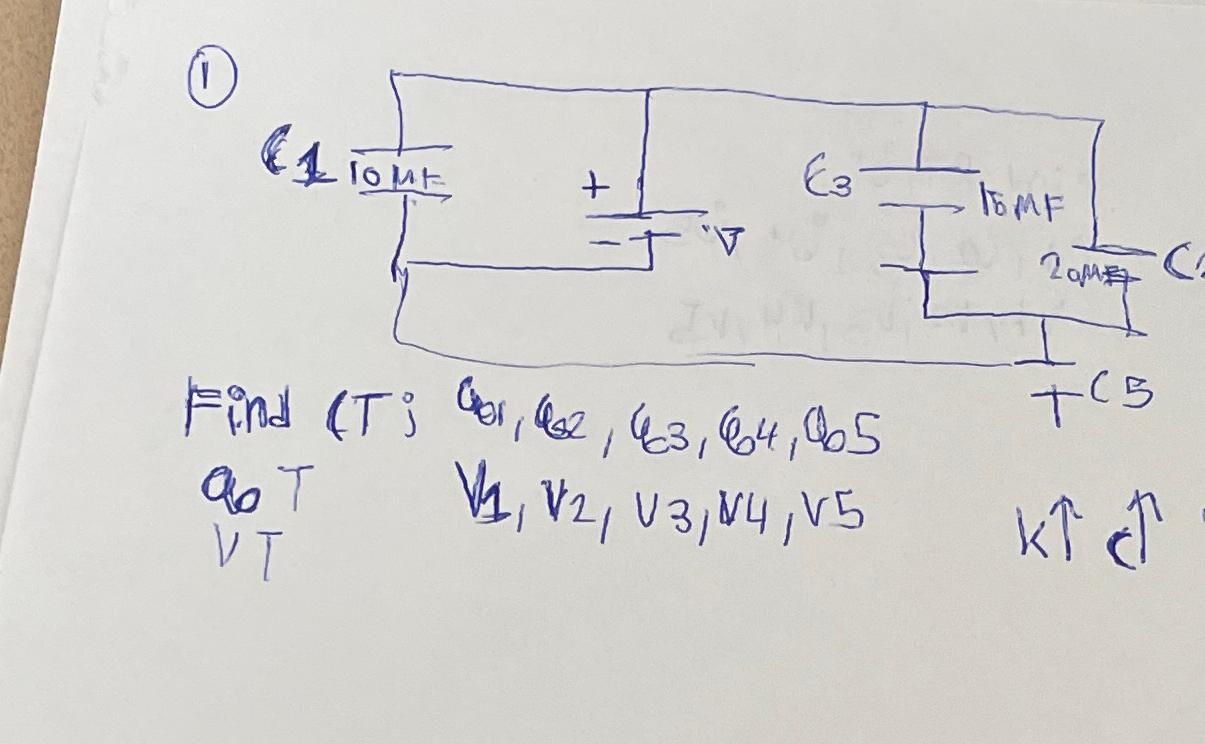 1
C1 10 MF
+
- V
C3 10 MF
20MF C
C5
Find CT; q1, q2, q3, q4, q5
q T V1, V2, V3, V4, V5
VT
K↑ C↑